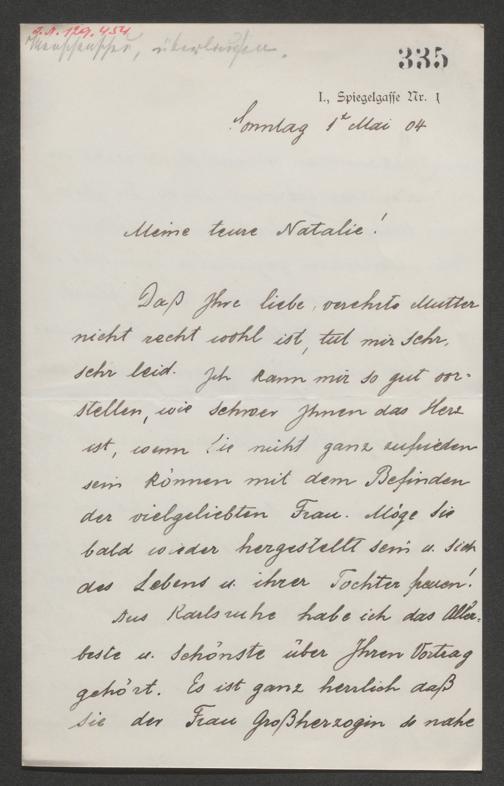 J.N. 129.454
Menschenscheu, überlaufen.
335
I., Spiegelgasse Nr. 1
Sonntag 1t Mai 04
Meine teure Natalie!
Daß Ihre liebe, verehrte Mutter
nicht recht wohl ist, tut mir sehr,
sehr leid. Ich kann mir so gut vor-
stellen, wie schwer Ihnen das Herz
ist, wenn Sie nicht ganz zufrieden
sein können mit dem Befinden
der vielgeliebten Frau. Möge Sie
bald wieder hergestellt sein u. sich
des Lebens u. ihrer Tochter freuen!
Aus Karlsruhe habe ich das Aller-
beste u. Schönste über Ihren Vortrag
gehört. Es ist ganz herrlich daß
Sie der Frau Großherzogin so nahe